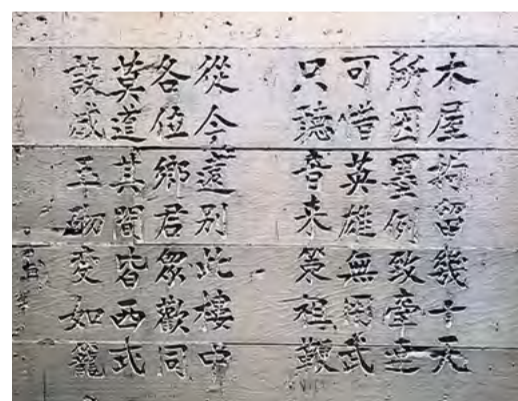 木屋拘留幾十天
所囚墨例致牽連
可惜英雄無用武
只聽音來策祖鞭
從今遠別此樓中
各位鄉君衆歡同
莫道其間皆西式
設成玉砌變如籠